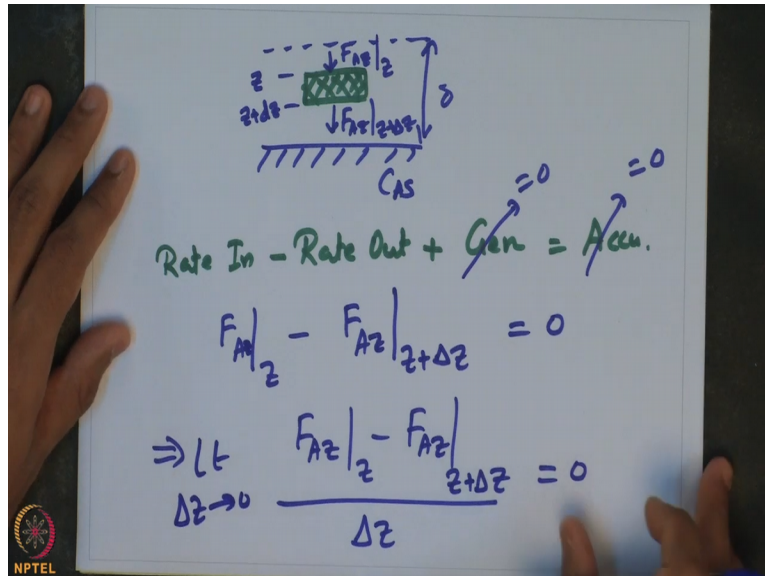 F_{AZ}|_Z
Z
Z+dZ
δ
F_{AZ}|_{Z+ΔZ}
C_{AS}
=0 =0
Rate In - Rate Out + Gen = Accu.
F_{AZ}|_Z - F_{AZ}|_{Z+ΔZ} = 0
⇒ Lt_{ΔZ→0} (F_{AZ}|_Z - F_{AZ}|_{Z+ΔZ}) / ΔZ = 0
NPTEL